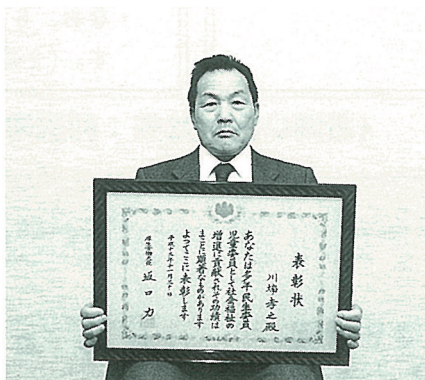 表彰状
川端孝之殿
あなたは多年民生委員
児童委員として社会福祉の
増進に貢献されその功績は
まことに顕著なものがあります
よってここに表彰します
平成十三年十一月三十日
厚生労働大臣 坂口力